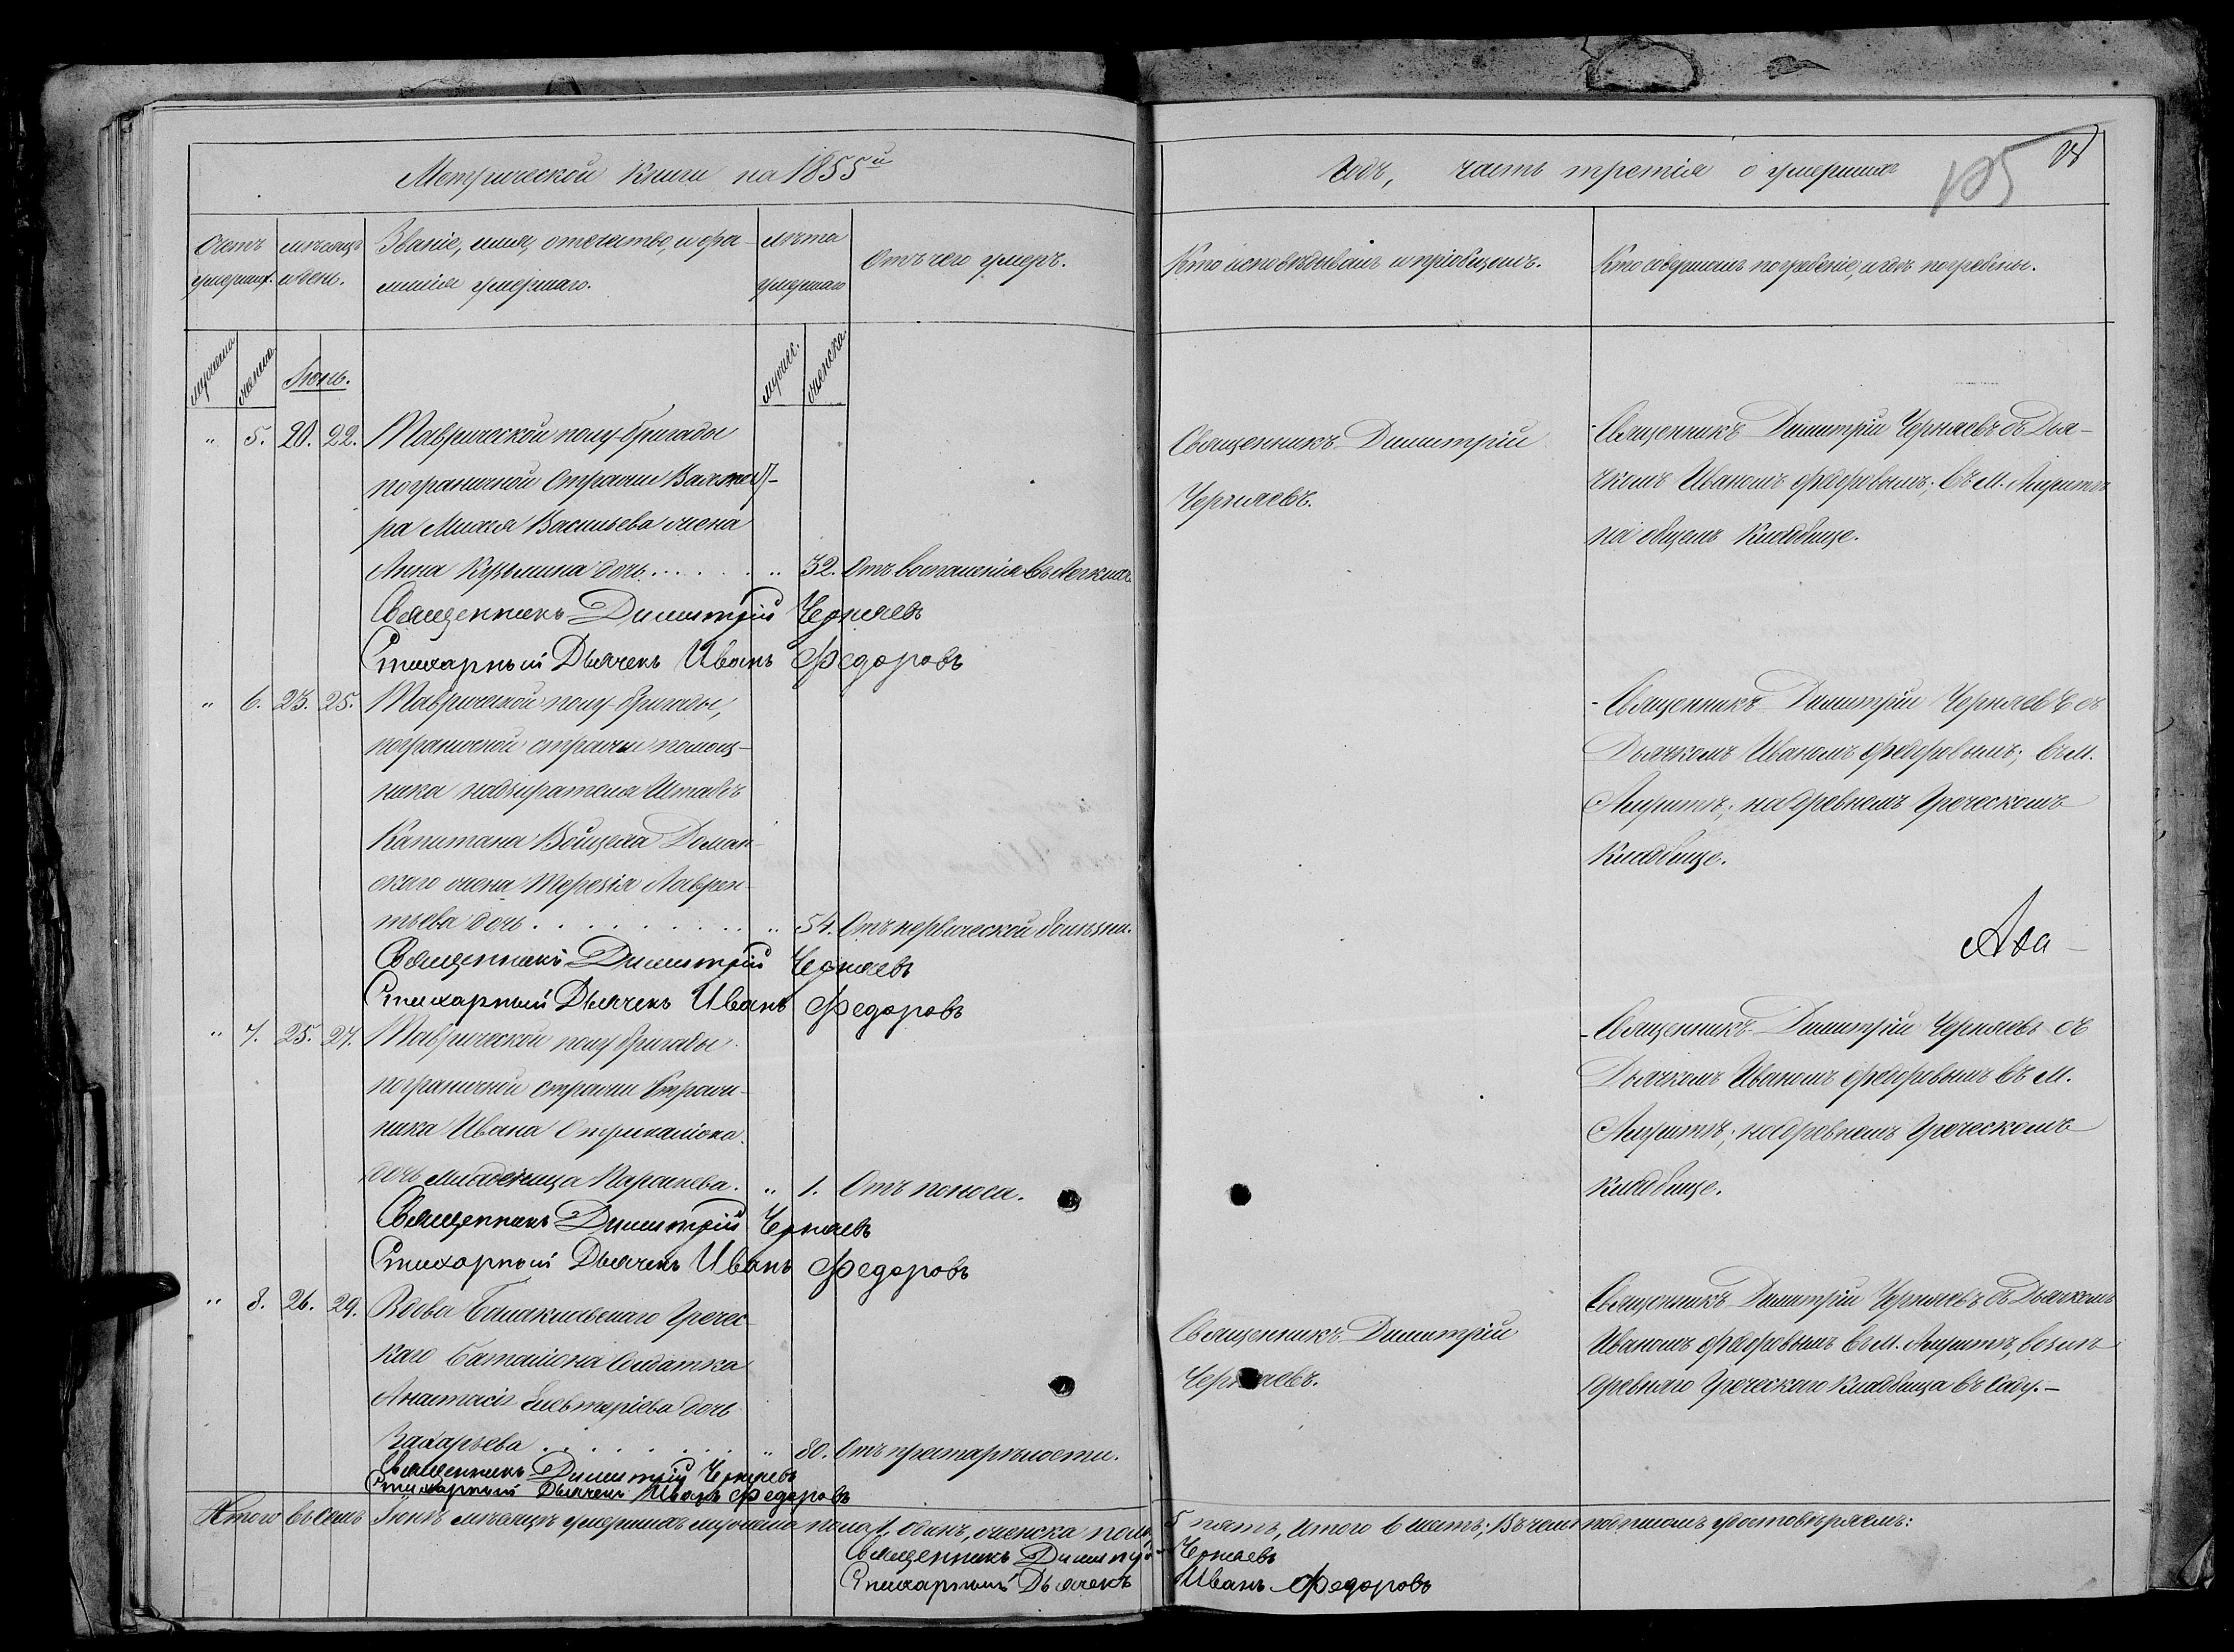 Метрической Книги на 1855й
Годъ, часть третія о умершихъ
105
Счетъ умершихъ.
мѣсяцъ и день.
Званіе, имя, отечество, и фамилія умершаго.
лѣта умершаго
Отъ чего умеръ.
Кто исповѣдывалъ и пріобщалъ.
Кто совершалъ погребеніе, и гдѣ погребены.
мужеска
женска
Іюнь.
мужес.
женска.
" 5. 20. 22. Таврической полу бригады
пограничной Стражи Вахмист-
ра Михея Васильева жена
Анна Кузьмина дочь. . . . . . " 32. Отъ воспаленія въ легкихъ.
Священникъ Димитрій
Черняевъ.
Священникъ Димитрій Черняевъ съ Дья-
чкомъ Иваномъ Федоровымъ; въ М. Ахритъ
на общемъ Кладбище.
Священникъ Димитрій Черняевъ
Стихарный Дьячекъ Иванъ Федоровъ
" 6. 23. 25. Таврической полу-бригады,
пограничной стражи помощ-
ника надзирателя Штабсъ
Капитана Войцеха Доман-
скаго жена Терезія Лаврен-
тьева дочь . . . . . . . . . " 54. Отъ нервической болѣзни.
Священникъ Димитрій Черняевъ съ
Дьячкомъ Иваномъ Федоровымъ; въ М.
на древнемъ Греческомъ
Кладбище.
Священникъ Димитрій Черняевъ
Стихарный Дьячекъ Иванъ Федоровъ
" 7. 25. 27. Таврической полу бригады
пограничной стражи Страж-
ника Ивана
дочь младеница Параскева. " 1. Отъ поноса.
Священникъ Димитрій Черняевъ съ
Дьячкомъ Иваномъ Федоровымъ въ М.
на древнемъ Греческомъ
Кладбище.
Священникъ Димитрій Черняевъ
Стихарный Дьячекъ Иванъ Федоровъ
" 8. 26. 29. Вдова Балаклавскаго Гречес-
каго баталіона Солдатка
Анастасія Елевтеріева дочь
Захарьева . . . . . . . " 80. Отъ престарѣлости.
Священникъ Димитрій
Черняевъ.
Священникъ Димитрій Черняевъ съ Дьячкомъ
Иваномъ Федоровымъ въ М. возлѣ
древняго Греческаго Кладбища въ Саду.-
Священникъ Димитрій Черняевъ
Стихарный Дьячекъ Иванъ Федоровъ
Итого въ семъ Іюнѣ мѣсяцѣ умершихъ мужеска пола 1. одинъ, женска пола 5 пять, Итого 6 шесть; Въ чемъ подписомъ удостовѣряемъ:
Священникъ Димитрій Черняевъ
Стихарный Дьячекъ Иванъ Федоровъ